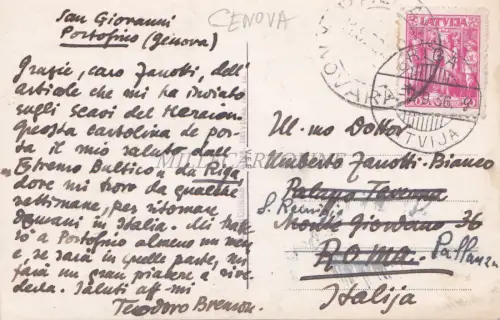 San Giovanni
Portofino (Genova)
CENOVA
Grazie, caro Zanotti, dell'
articolo che mi ha inviato
sugli Scavi del Heraion.
Questa cartolina le por-
ta il mio saluto dall'
"Estremo Baltico" da Riga
dove mi trovo da qualche
settimana, per ritornare
domani in Italia. Mi tratter-
rò a Portofino almeno un mese
e, se sarà in quelle parte, mi
farà un gran piacere a rive-
derla. Saluti aff-mi
Teodoro Brenson.
LATVIJA
RIGA
LATVIJA
NOVARA
Ill-mo Dottor
Umberto Zanotti-Bianco
Palazzo Taverna
Monte Giordano 36
S. Remigio
Pallanza
ROMA
Italija